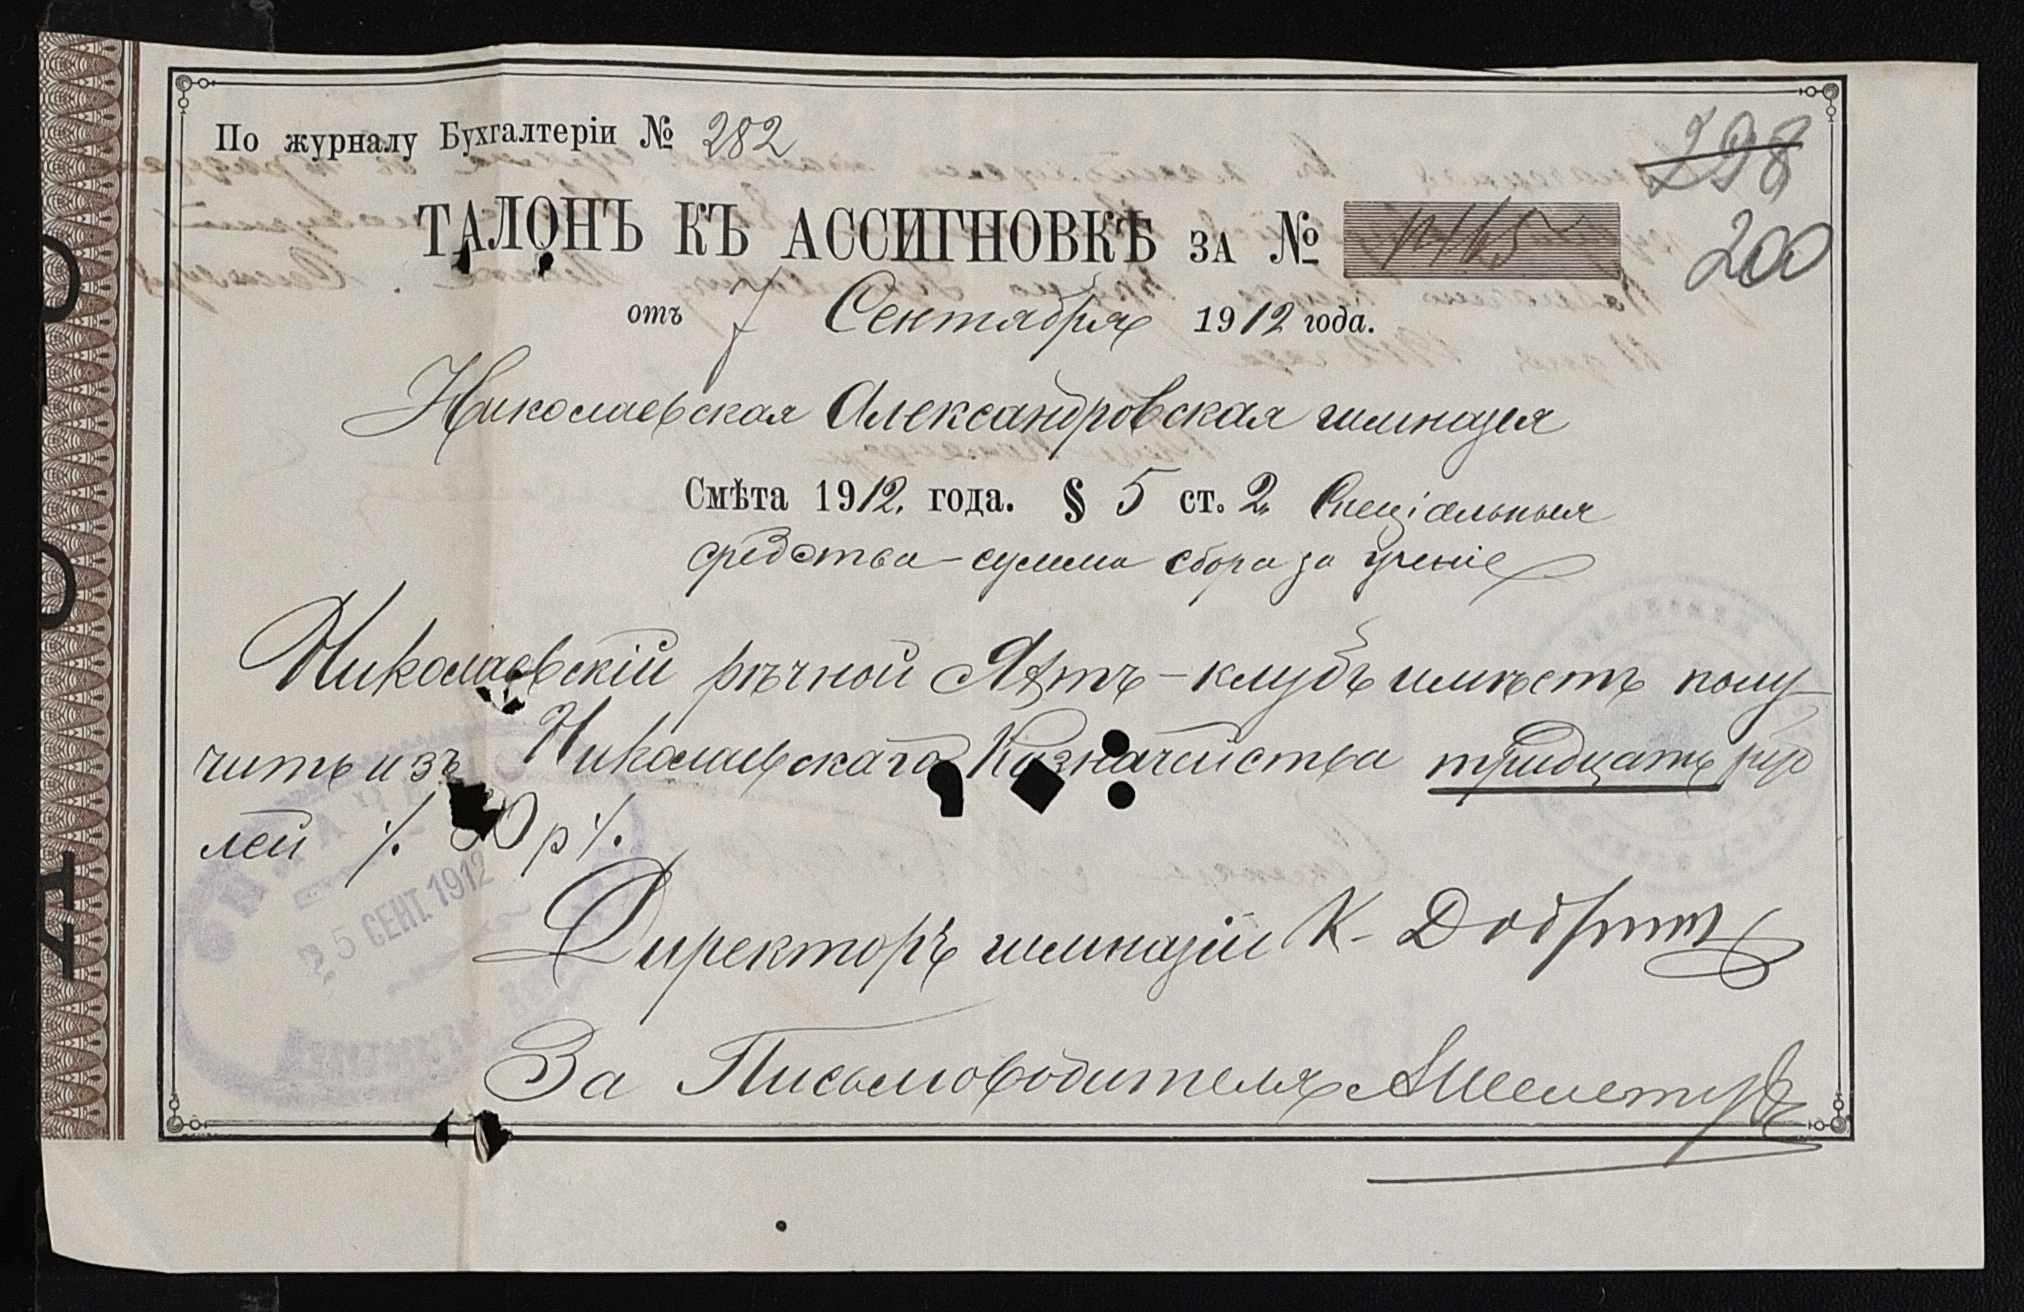 По журналу Бухгалтеріи № 282
298
ТАЛОНЪ КЪ АССИГНОВКѢ ЗА №
200
отъ 7 Сентября 1912 года.
Николаевская Александровская гимназія
Смѣта 1912. года. § 5 ст. 2. Спеціальныя
средства - сумма сбора за ученіе
Николаевскій рѣчной Яхтъ-клубъ имѣетъ полу-
чить изъ Николаевскаго Казначейства тридцать руб
лей ·/. 30 р ·/.
25 СЕНТ. 1912
Директоръ гимназіи К.
За Письмоводителя